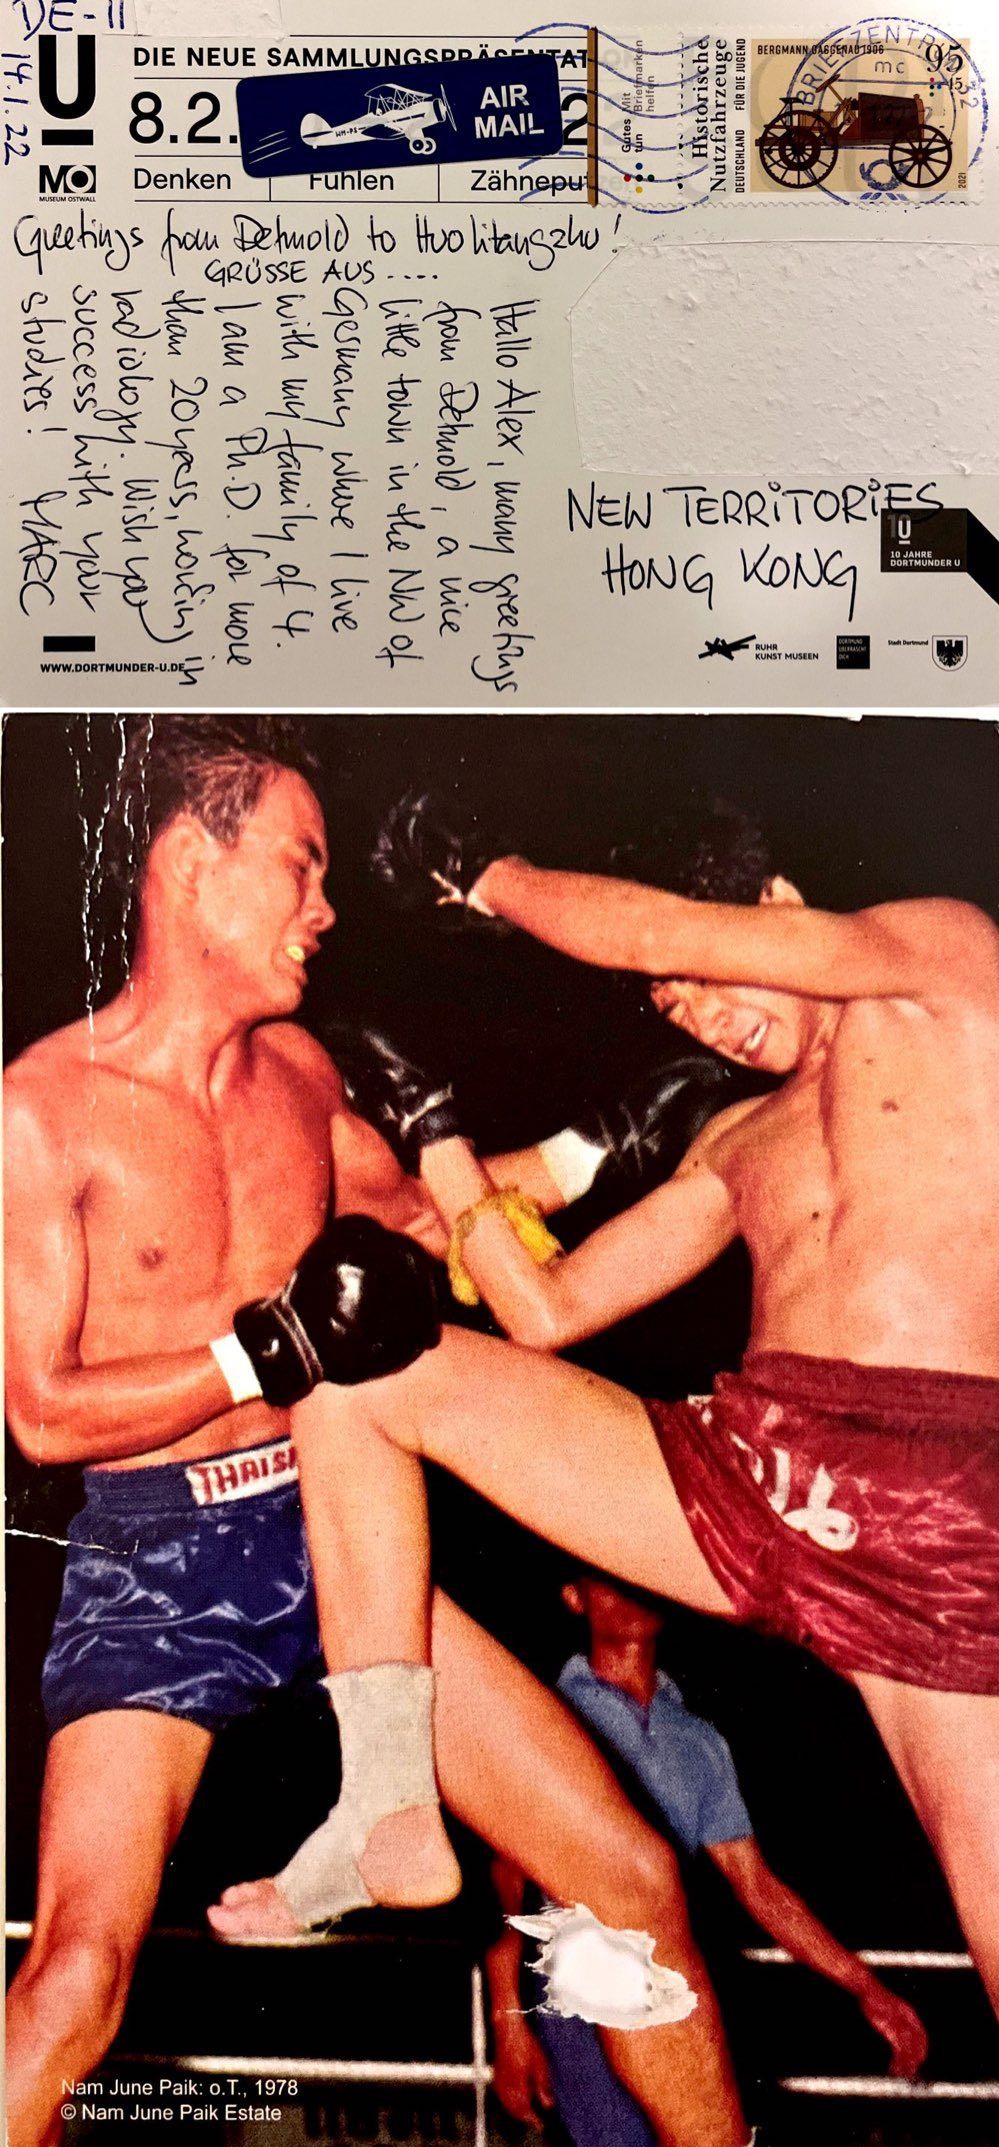 DE-11
14.1.22
U
MO
MUSEUM OSTWALL
DIE NEUE SAMMLUNGSPRÄSENTATION
8.2.
Denken
Fühlen
Zähneputze
AIR
MAIL
Gutes tun
Mit Briefmarken helfen
Historische
Nutzfahrzeuge
DEUTSCHLAND FÜR DIE JUGEND
BERGMANN GAGGENAU 1906
95
+15
2021
BRIEFZENTRUM 32
mc
Greetings from Detmold to Huolitangzhu!
GRÜSSE AUS ....
Hallo Alex, many greetings
from Detmold, a nice
little town in the NW of
Germany where I live
with my family of 4.
I am a Ph.D. for more
than 20 years, working in
radiology. Wish you
success with your
studies! MARC
NEW TERRITORIES
HONG KONG
10
10 JAHRE
DORTMUNDER U
WWW.DORTMUNDER-U.DE
RUHR
KUNST MUSEEN
DORTMUND
ÜBERRASCHT
DICH
Stadt Dortmund
THAISM
Nam June Paik: o.T., 1978
© Nam June Paik Estate